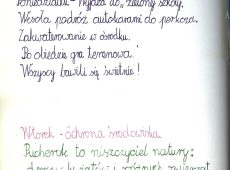 Poniedziałek - wyjazd do „zielonej szkoły.
Wesoła podróż autokarami do
Zakwaterowanie w ośrodku.
Po obiedzie gra terenowa.
Wszyscy bawili się świetnie!
Wtorek - ochrona środowiska
to niszczyciel natury:
i różnych zwierząt